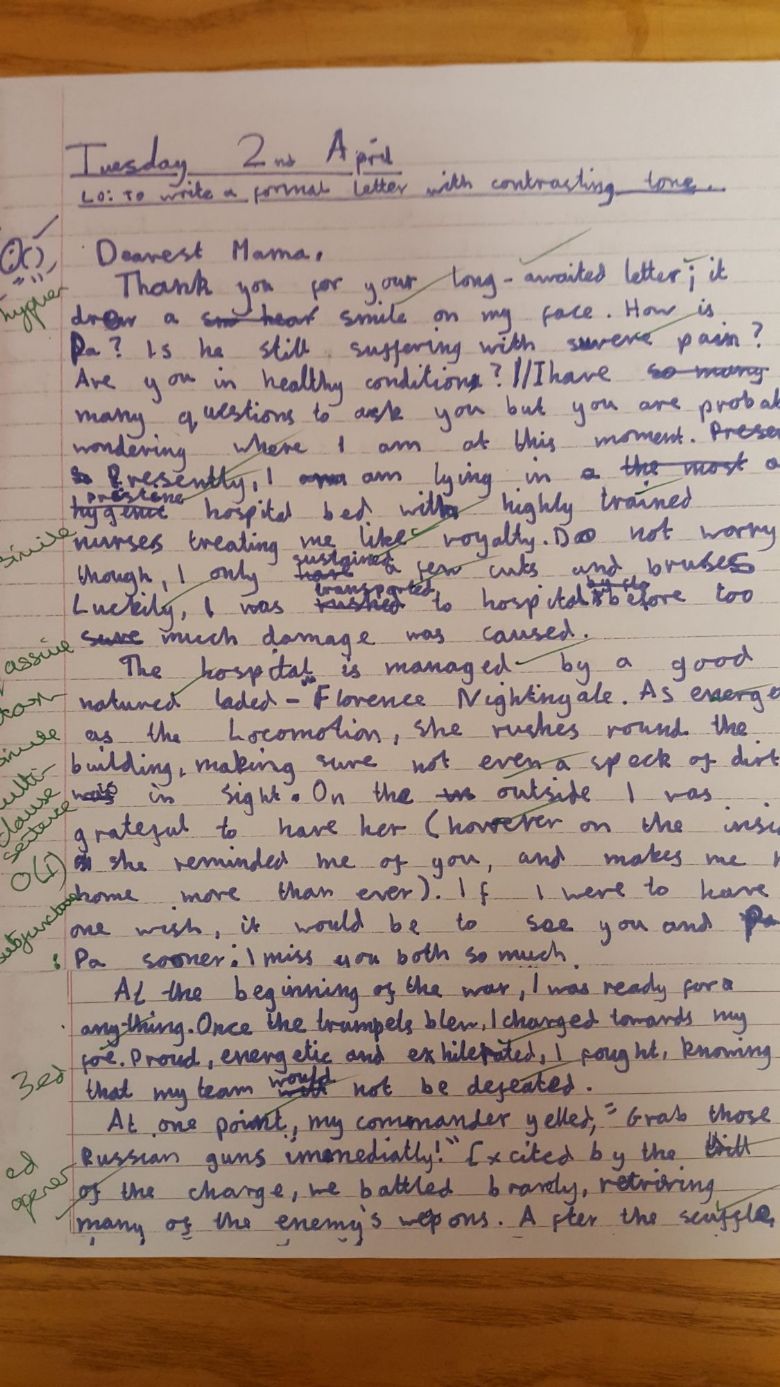 Tuesday 2nd April
LO: To write a formal letter with contrasting tone.
O(I)
"..."
hyphen
Dearest Mama,
Thank you for your long-awaited letter; it
drew a smile on my face. How is
Pa? Is he still suffering with severe pain?
Are you in healthy condition? // I have so many
many questions to ask you but you are probab
wondering where I am at this moment. Presen
Presently, I am lying in a the most a
prestene
hygenic hospital bed with highly trained
simile
nurses treating me like royalty. Do not worry
sustained
though, I only have a few cuts and bruses
transported
Luckily, I was rushed to hospital before too
sure much damage was caused.
passive
The hospital is managed by a good
natured laded - Florence Nightingale. As energe
simile
as the Locomotion, she rushes round the
multi-
clause
sentence
building, making sure not even a speck of dirt
was in sight. On the outside I was
grateful to have her (however on the insi
O(I)
she reminded me of you, and makes me
home more than ever). If I were to have
subjunctive
one wish, it would be to see you and Pa
: Pa sooner: I miss you both so much.
At the beginning of the war, I was ready for a
anything. Once the trumpets blew, I charged towards my
foe. Proud, energetic and exhilerated, I fought, knowing
3ed
would
that my team will not be defeated.
At one point, my commander yelled, "Grab those
Russian guns immediatly!" Excited by the thrill
ed
opener
of the charge, we battled bravly, retriving
many of the enemy's wepons. After the scuffle,